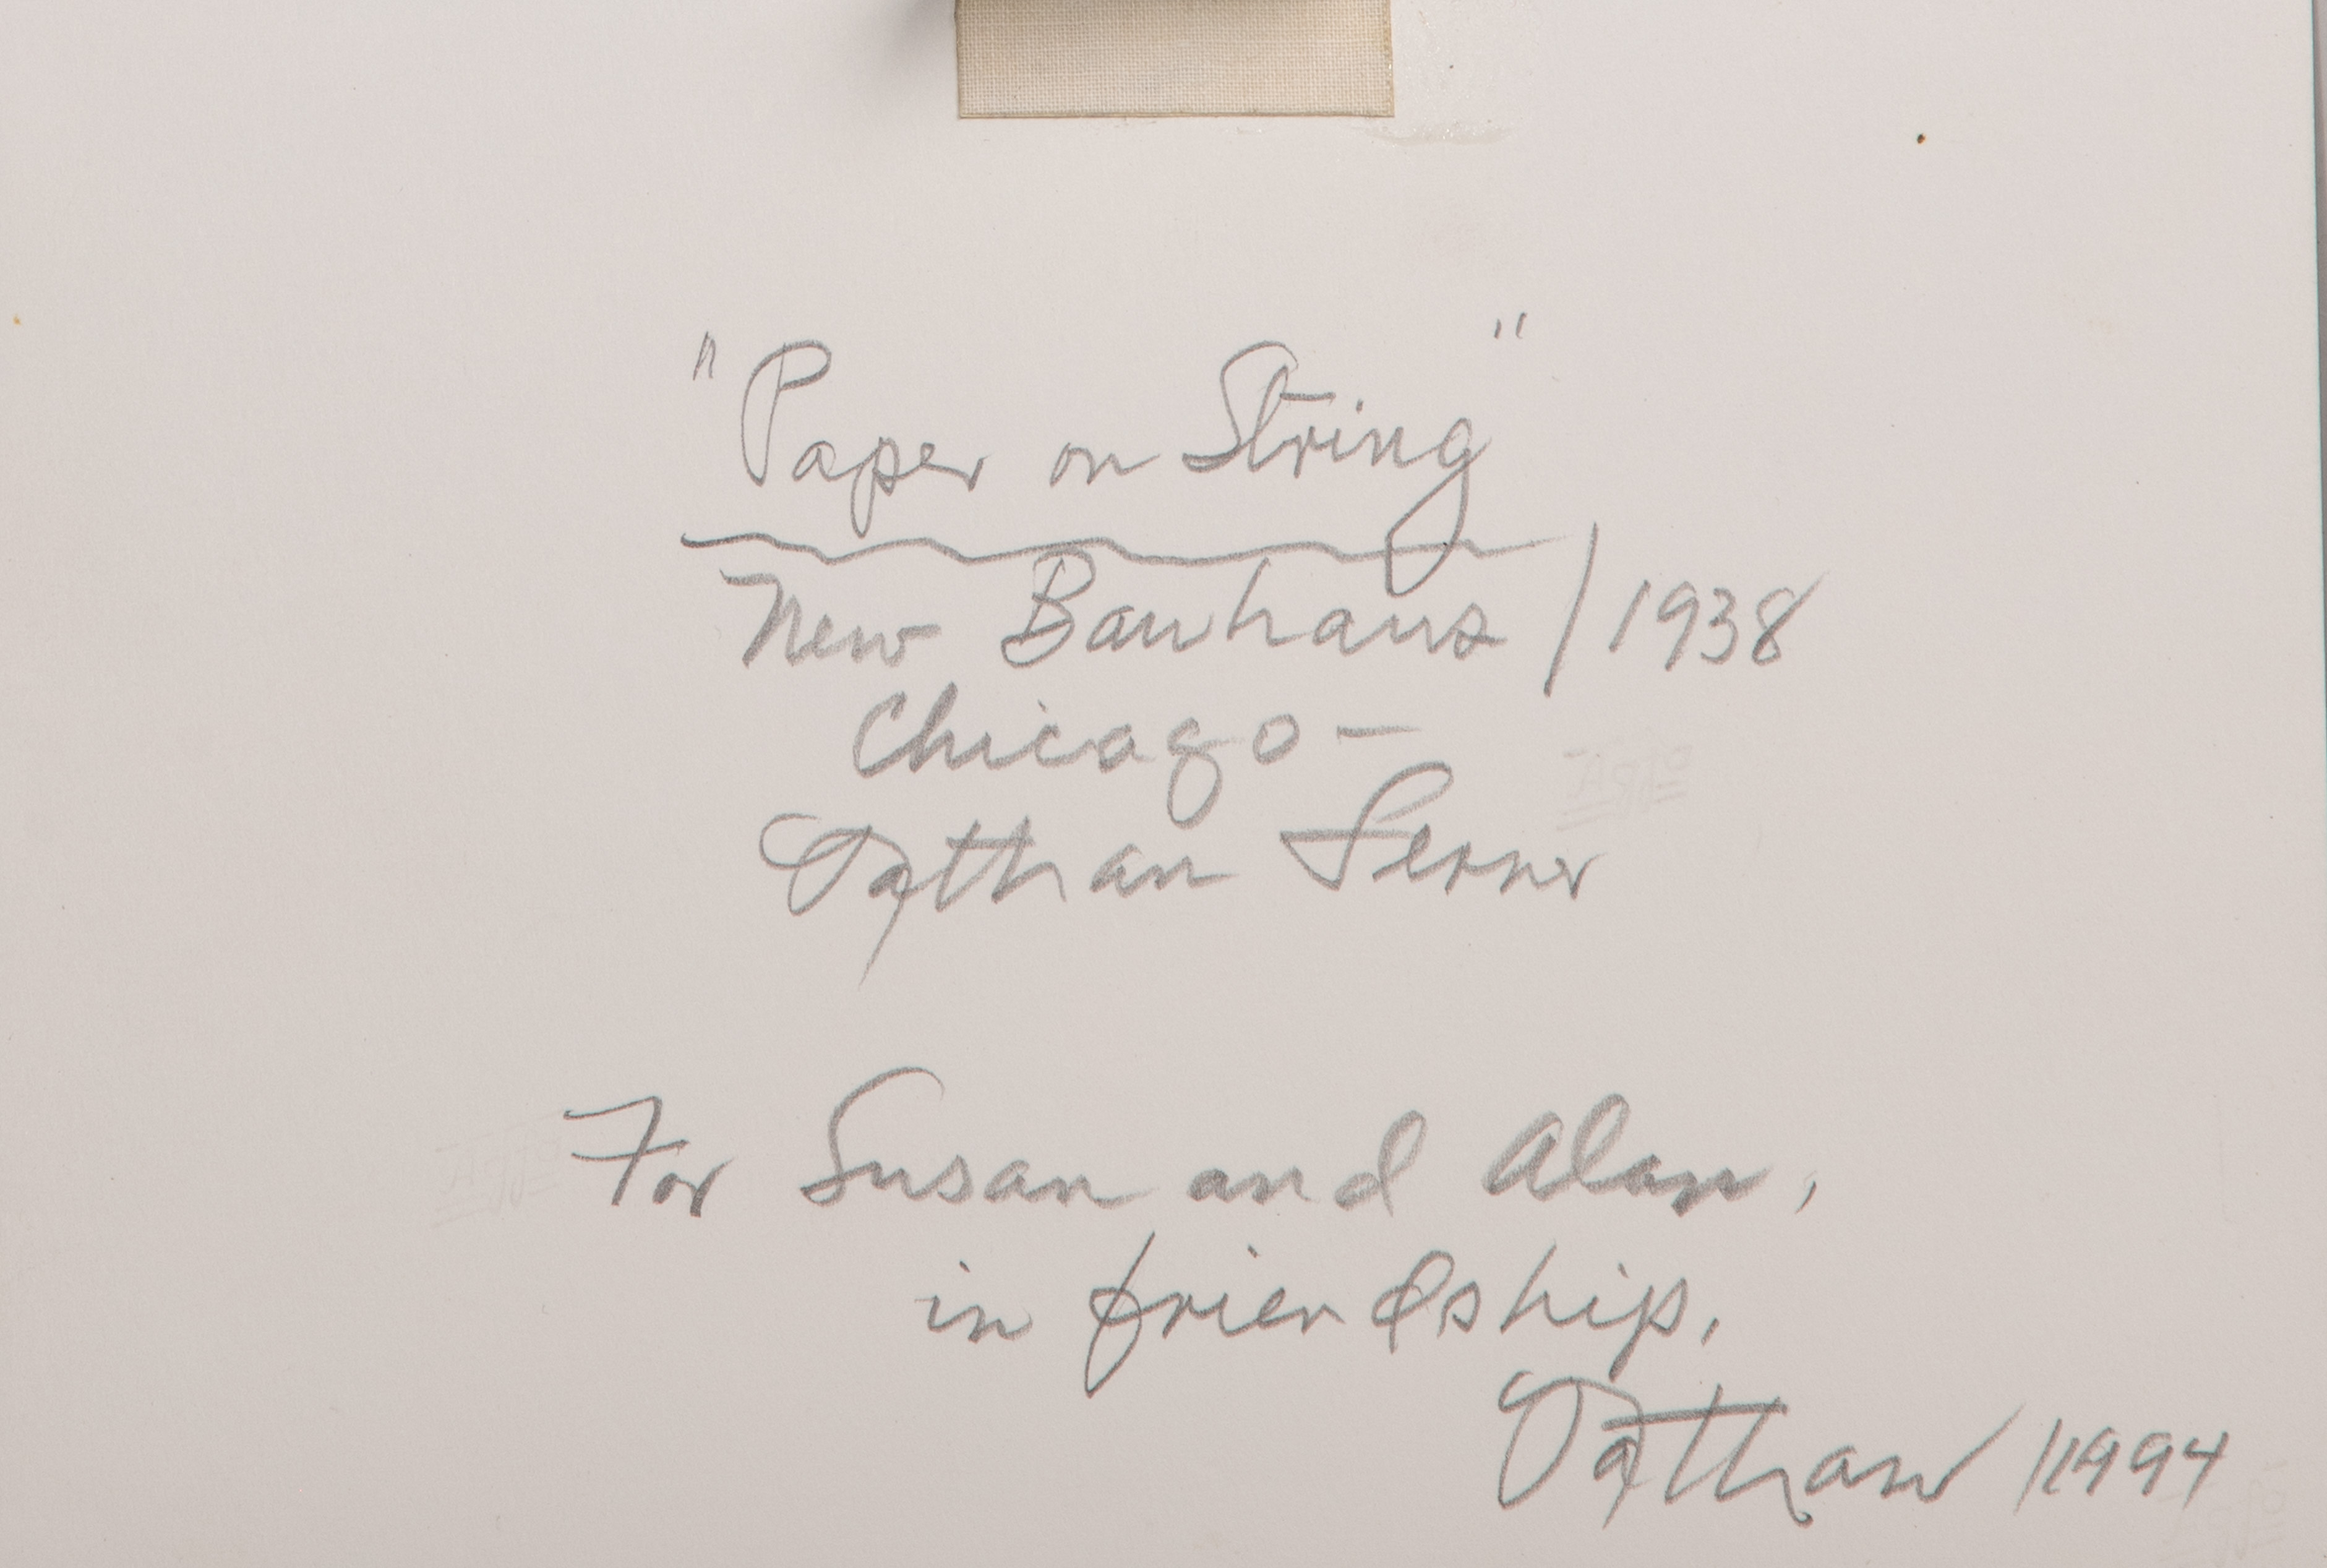 "Paper on String"
New Bauhaus / 1938
Chicago –
Nathan Lerner
For Susan and Alan,
in friendship,
Nathan / 1994